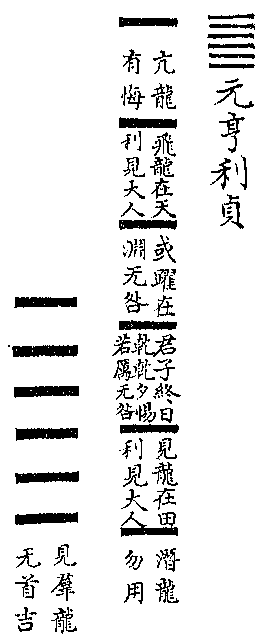 元亨利貞
亢龍
有悔
飛龍在天
利見大人
或躍在
淵无咎
君子終日
乾乾夕惕
若厲无咎
見龍在田
利見大人
潛龍
勿用
見羣龍
无首吉